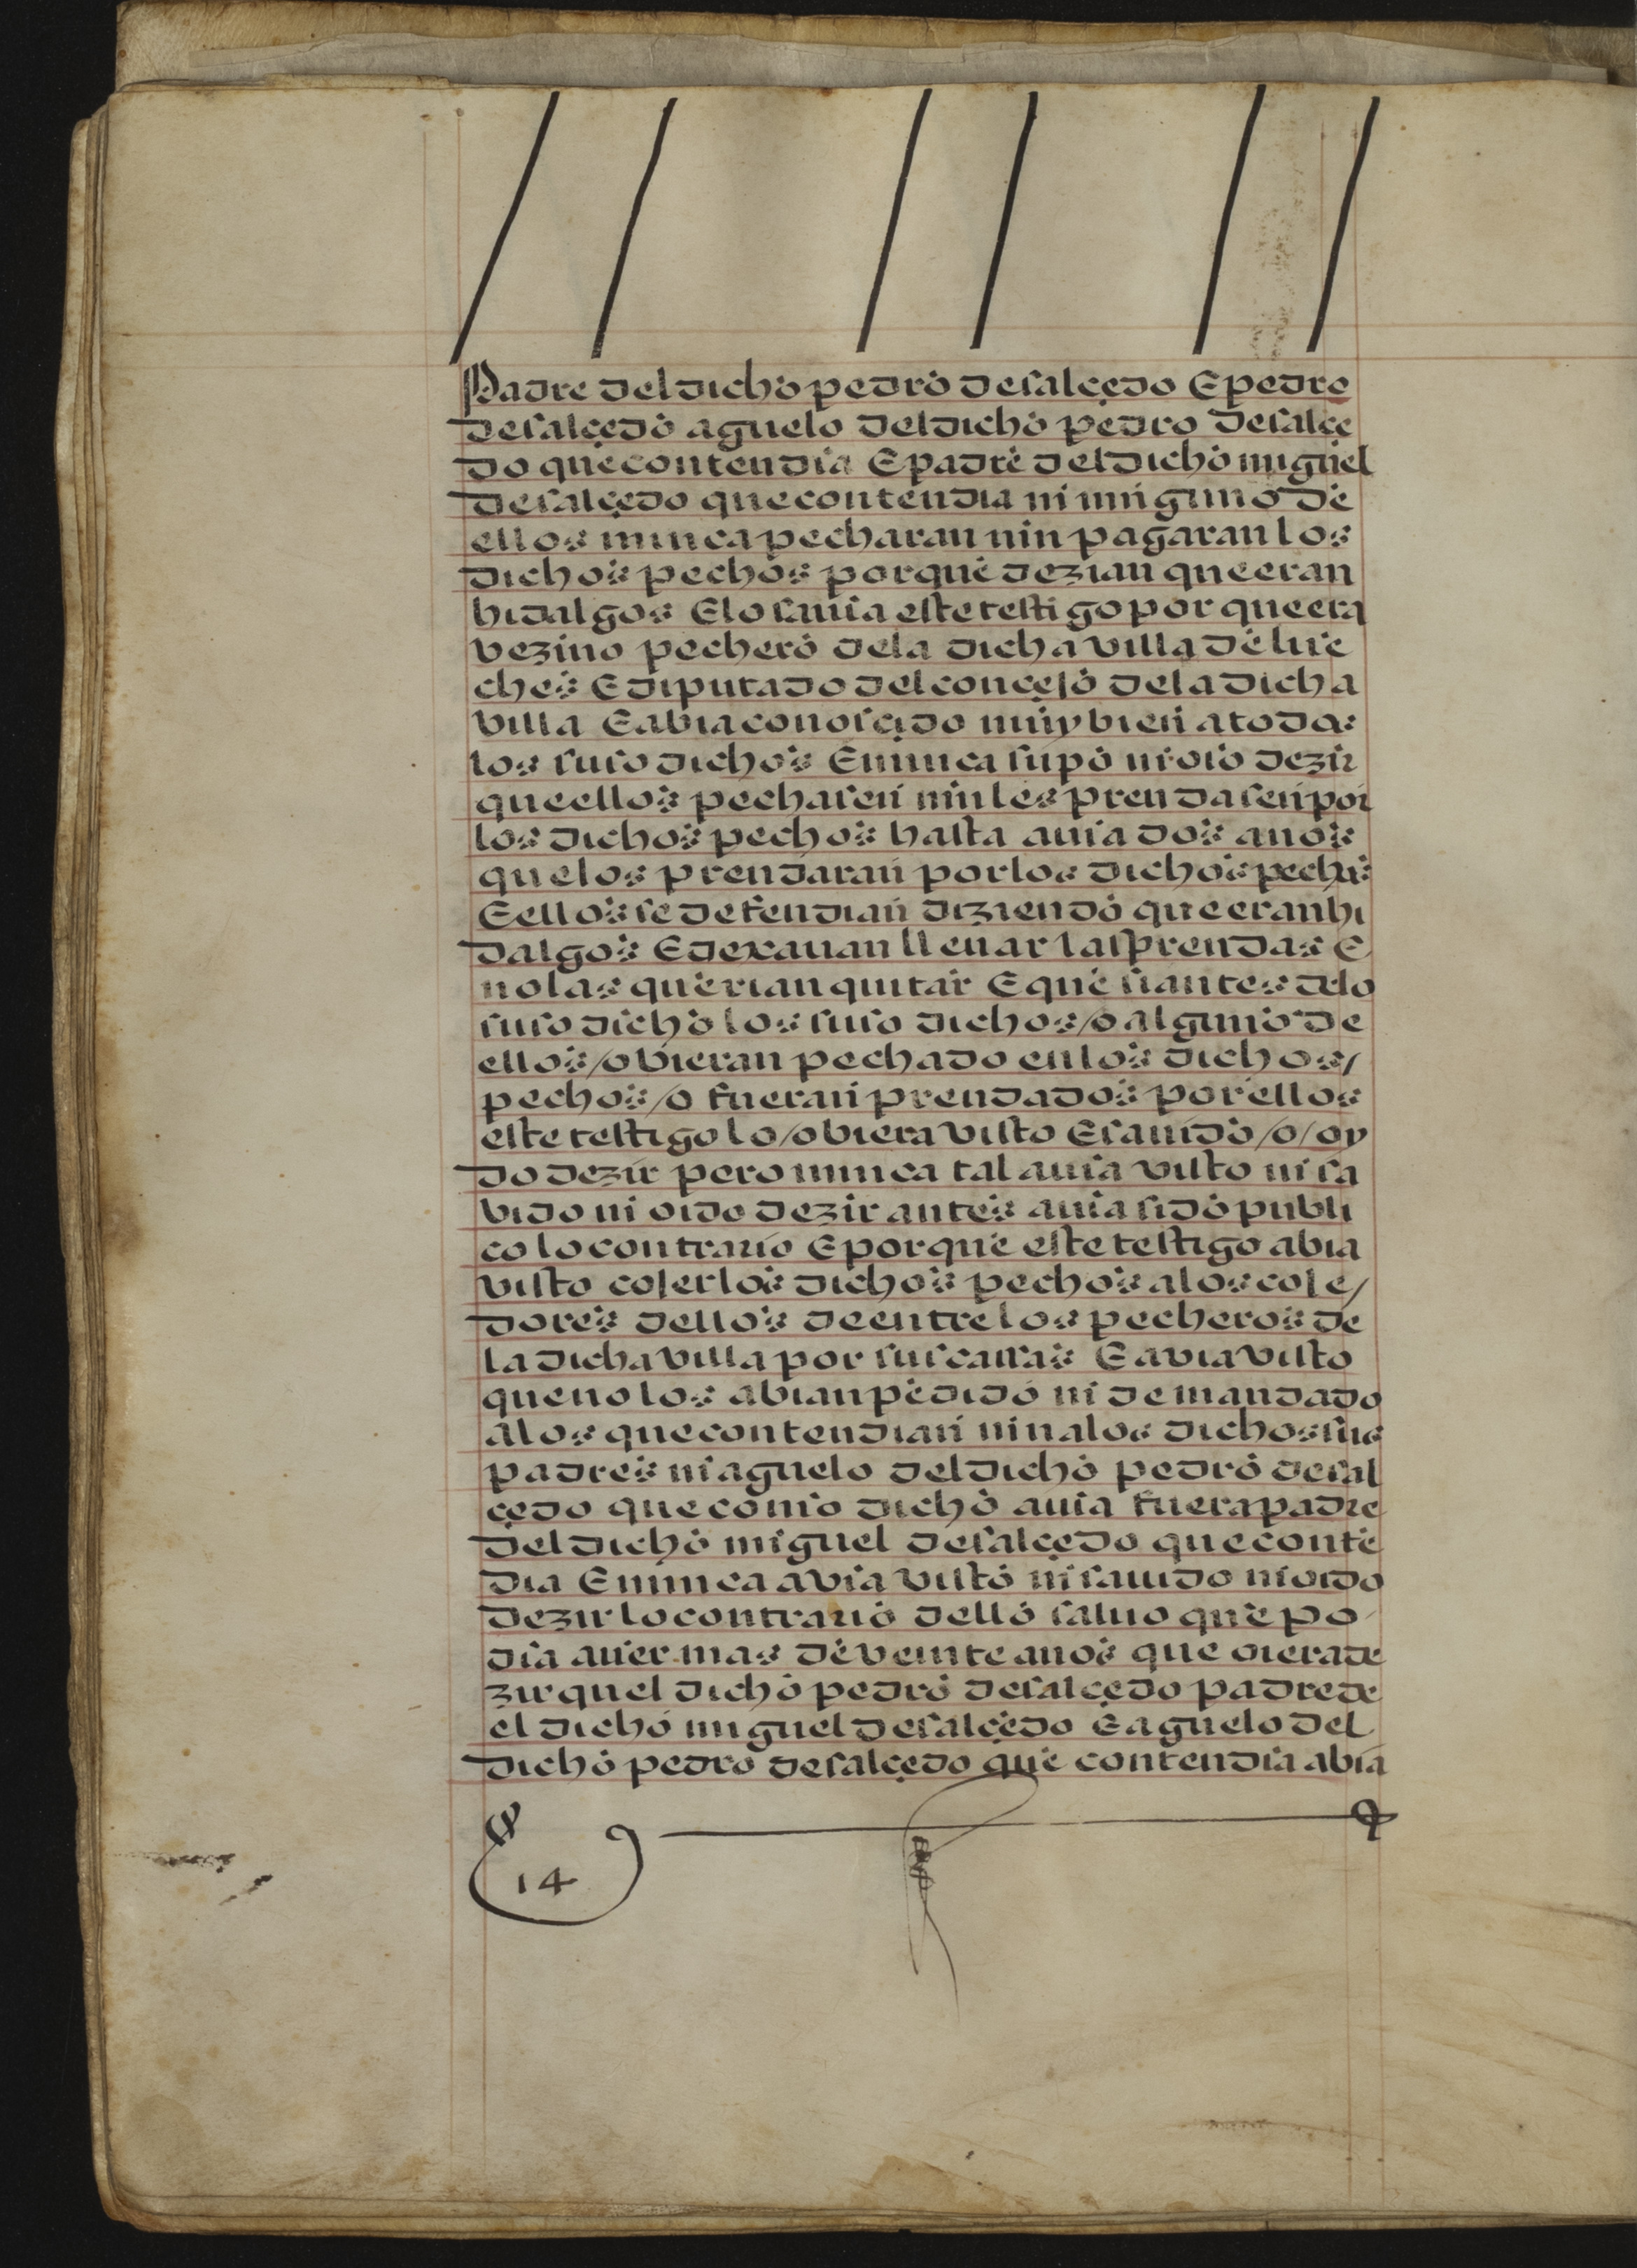 Padre del dicho pedro de salçedo E pedro
de salçedo aguelo del dicho pedro de salçe
do que contendia E padre del dicho miguel
de salçedo que contendia ni ninguno de
ellos nunca pecharan nin pagaran los
dichos pechos porque dezian que eran
hidalgos E lo sauia este testigo por que era
vezino pechero de la dicha villa de lue
ches E diputado del conçejo de la dicha
villa E abia conosçido muy bien a todos
los suso dichos E nunca supo ni oio dezir
que ellos pechasen nin les prendasen por
los dichos pechos hasta auia dos anos
que los prendaran por los dichos pechos
E ellos se defendian diziendo que eran hi
dalgos E dexauan lleuar las prendas E
no las querian quitar E que si antes de lo
suso dicho los suso dichos /o alguno de
ellos /obieran pechado en los dichos/
pechos /o fueran prendados por ellos
este testigo lo /obiera visto E sauido /o/ oy
do dezir pero nunca tal auia visto ni sa
bido ni oido dezir antes auia sido publi
co lo contrario E porque este testigo abia
visto cojer los dichos pechos a los coje/
dores dellos de entre los pecheros de
la dicha villa por sus casas E avia visto
que no los abian pedido ni demandado
a los que contendian nin a los dichos sus
padres ni aguelo del dicho pedro de sal
çedo que como dicho auia fuera padre
del dicho miguel de salçedo que conte
dia E nunca avia visto ni sauido ni oido
dezir lo contrario dello saluo que po
dia auer mas de veinte anos que oiera de
zir quel dicho pedro de salçedo padre de
el dicho miguel de salçedo E aguelo del
dicho pedro de salçedo que contendia abia
14